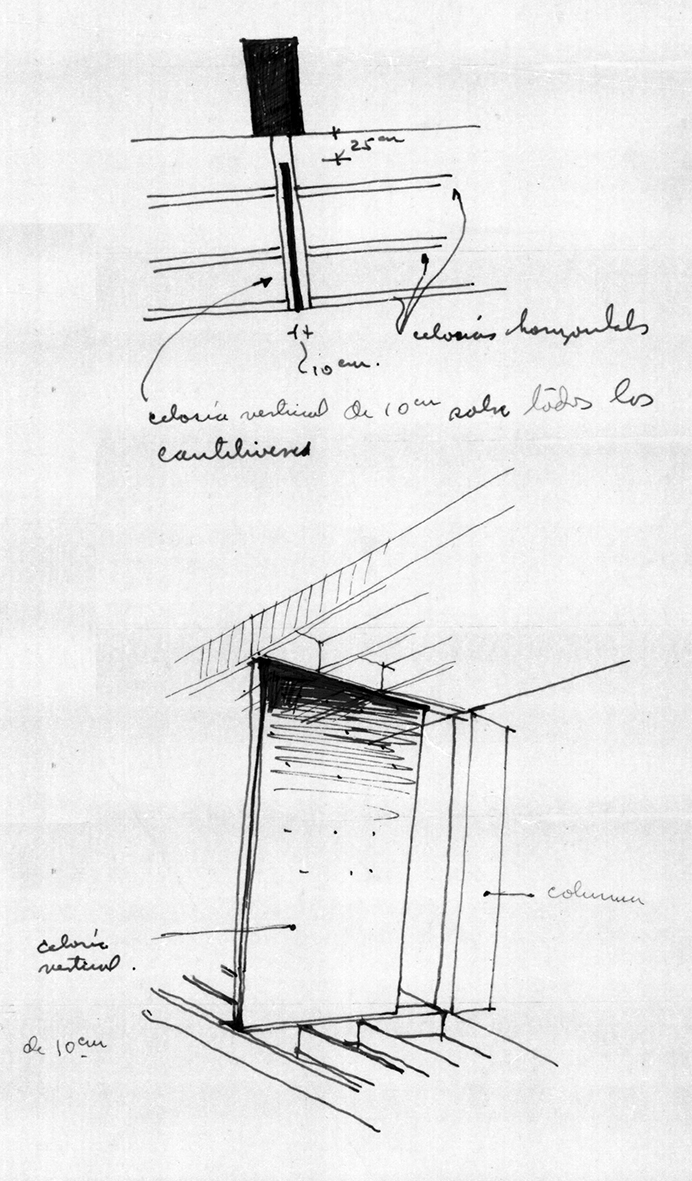 25 cm
celosías horizontals
10 cm.
celosía vertical de 10 cm sobre todos los
cantiliveres
column
celosía
vertical.
de 10 cm